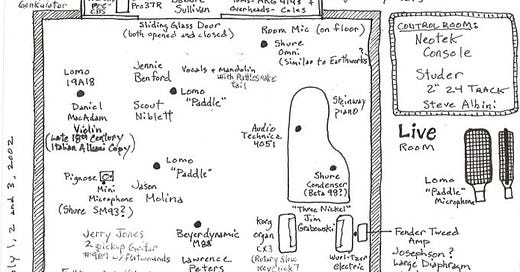 Genkulator
CBS
Pro37R
Sullivan
Overheads - Coles
Sliding Glass Door
(both opened and closed)
Room Mic (on floor)
Shure
Omni
(Similar to Earthworks)
?
Lomo
19A18
Jennie
Benford
Vocals & Mandolin
with Rattlesnake
tail
Lomo
"Paddle"
Daniel
MacAdam
Violin
(Late 18th Century)
(Italian Albani Copy)
Scout
Niblett
Steinway
piano
Audio
Technica
4051
Lomo
"Paddle"
Pignose
Mini
Microphone
(Shure SM93?)
Jason
Molina
Shure
Condenser
(Beta 98?)
"Three Nickel"
Jim
Grabowski
Jerry Jones
2 pickup Guitar
w/flatwounds
Beyerdynamic
M88
Lawrence
Peters
Korg
organ
CX3
(Rotary Slow
Key Click?
Wurlitzer
electric
Fender Tweed
Amp
Josephson?
Large Diaphragm
CONTROL ROOM:
Neotek
Console
Studer
2" 24 TRACK
Steve Albini
Live
ROOM
Lomo
"Paddle"
Microphone
July 1, 2 and 3, 2002